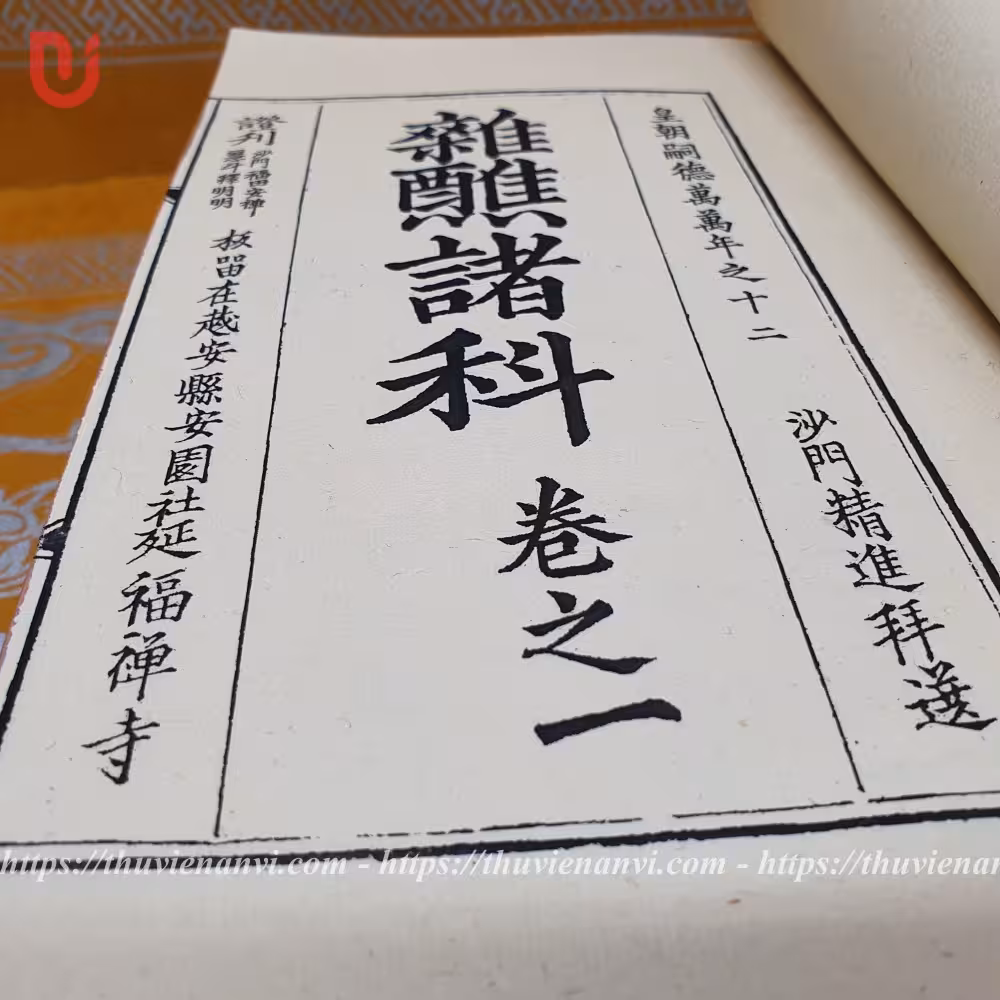 皇朝嗣德萬萬年之十二
沙門精進拜選
雜醮諸科
卷之一
證刋
沙門福田安禅
釋明明
板留在越安縣安園社延福禅寺
https://thuvienanvi.com - https://thuvienanvi.com - https://thuvienanvi